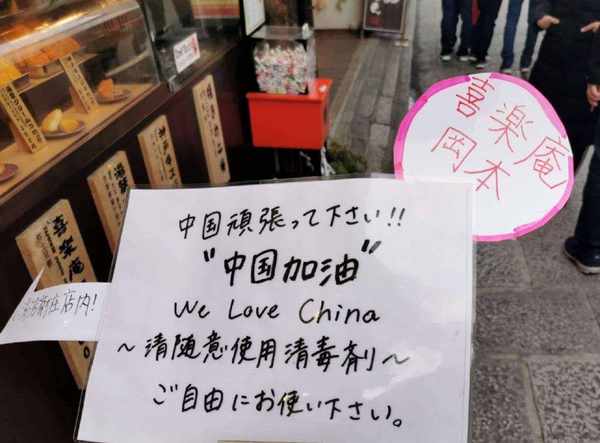 喜楽庵
岡本
中国頑張って下さい!!
"中国加油"
We Love China
~清随意使用清毒剤~
ご自由にお使い下さい。
在店内!
喜楽庵